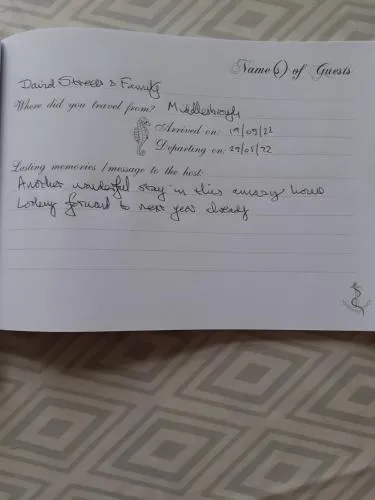 Name(s) of Guests
David Streets & Family
Where did you travel from? Middlesbrough
Arrived on: 19/09/22
Departing on:
Lasting memories / message to the host:
Another wonderful stay in this amazing house
Looking forward to next year already